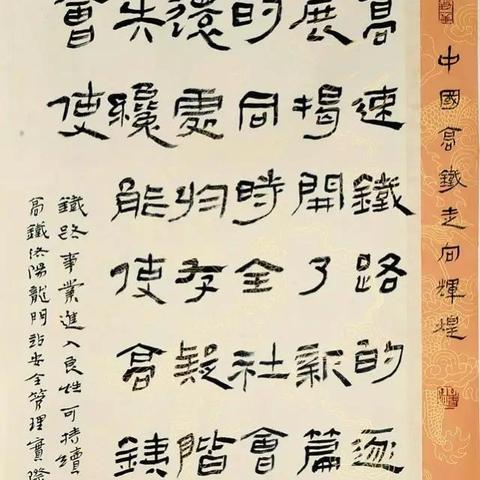 中國高鐵走向輝煌
高速鐵路的逐
展揭開了新篇
的同時全社會
遠處归存疑階
失纔能使高鐵
會使
鐵路事業進入良性可持續
高鐵洛陽龍門站安全管理實際